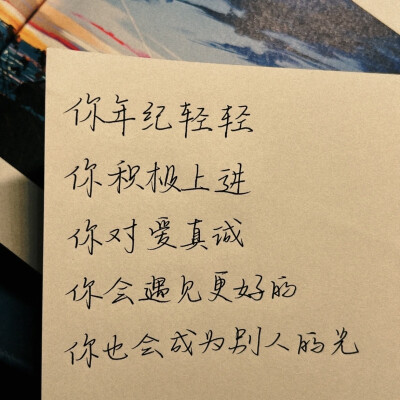 你年纪轻轻
你积极上进
你对爱真诚
你会遇见更好的
你也会成为别人的光